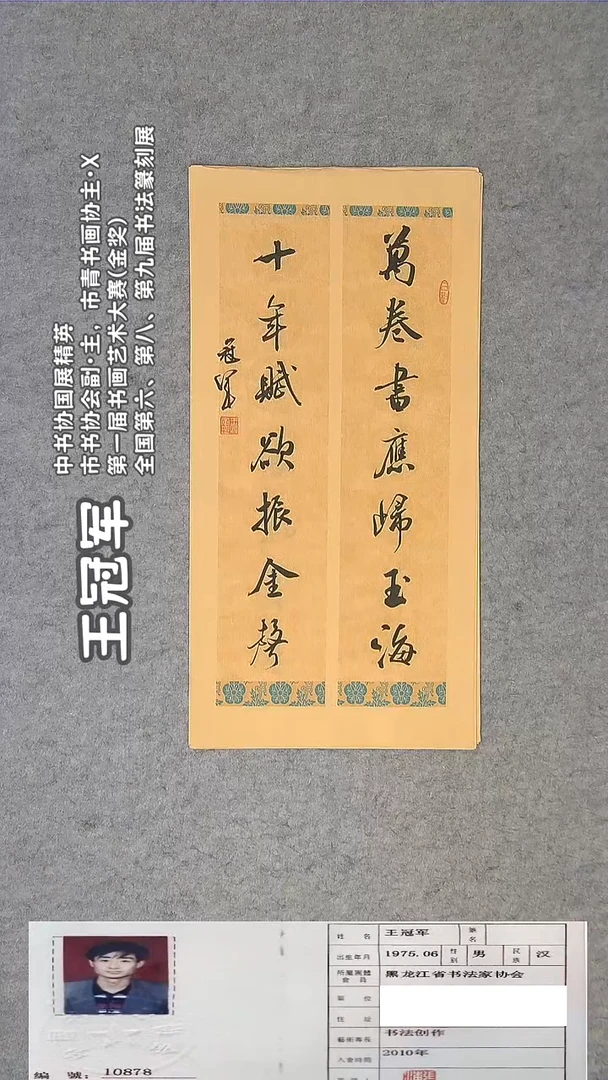 中书协国展精英
市书协会副·主，市青书画协主·X
第一届书画艺术大赛(金奖)
全国第六、第八、第九届书法篆刻展
王冠军
萬卷書應歸玉海
十年賦欲振金聲
冠軍
姓 名 王冠军 筆名
出生年月 1975.06 性别 男 民族 汉
所屬團體會員 黑龙江省书法家协会
單位
住址
藝術專長 书法创作
入會時間 2010年
編 號： 10878